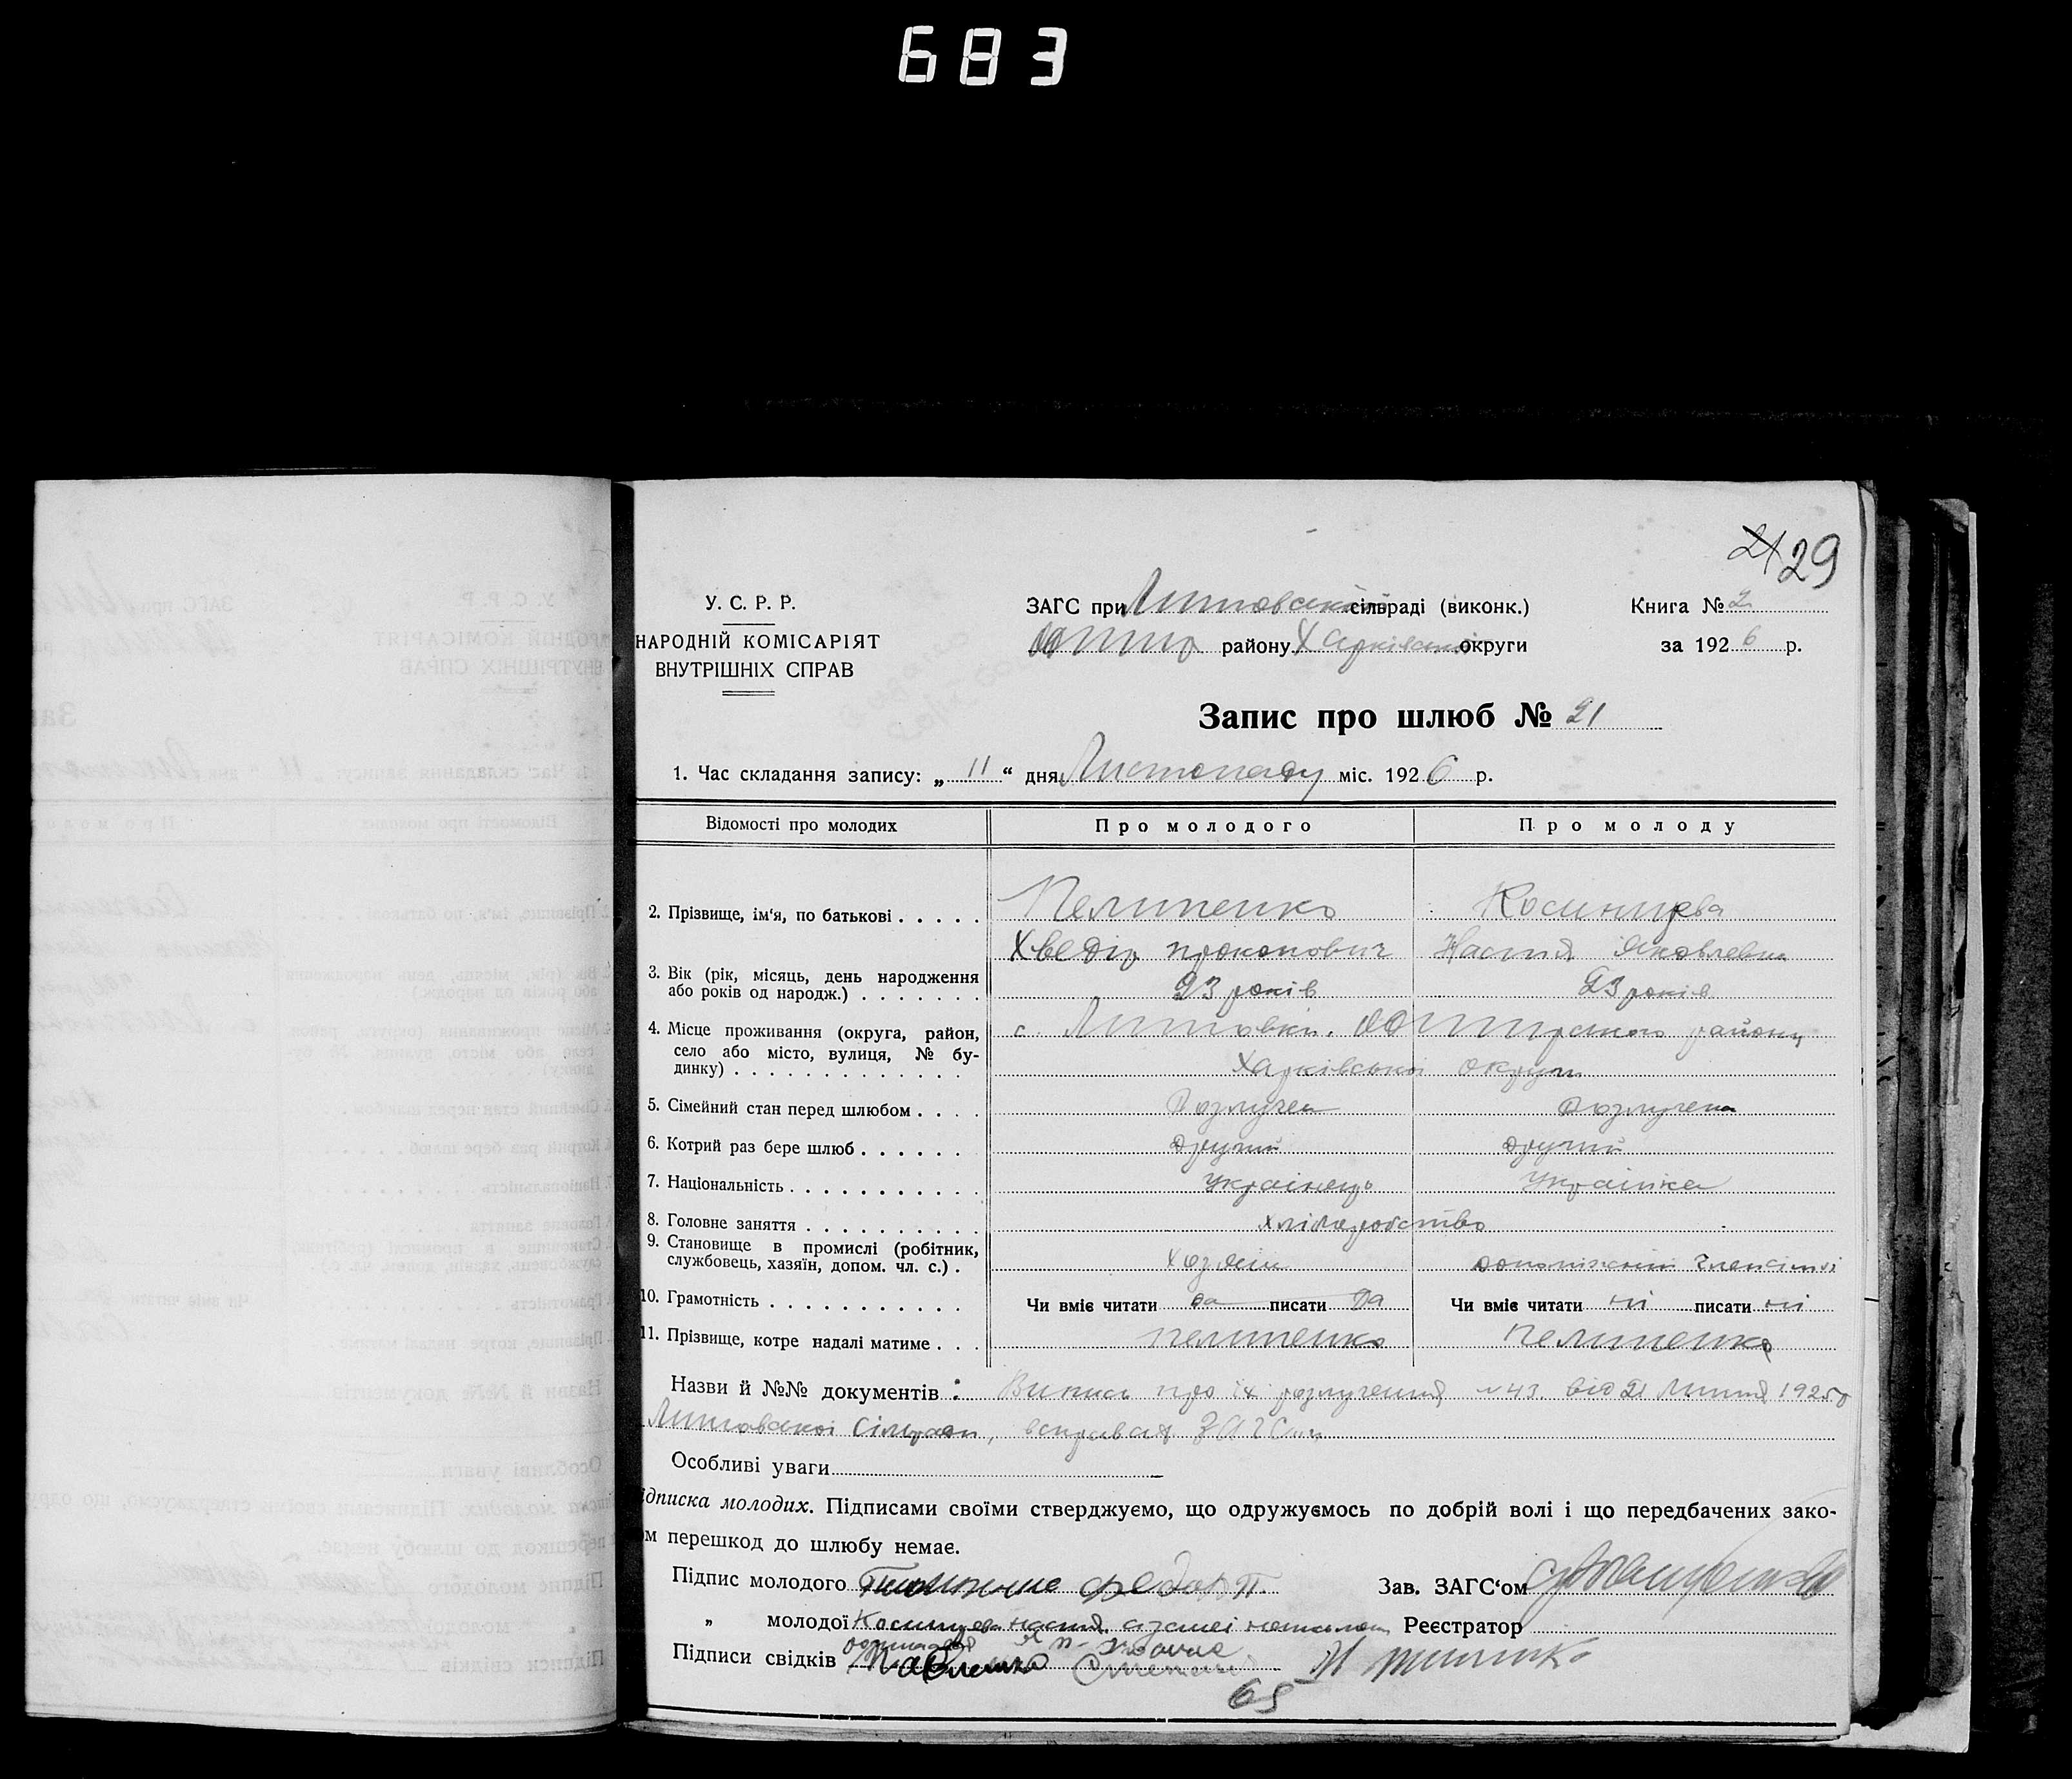 683
29
У. С. Р. Р.
НАРОДНІЙ КОМІСАРІЯТ
ВНУТРІШНІХ СПРАВ
ЗАГС при Липовській сільраді (виконк.)
району Харківської округи
Книга № 2
за 1926 р.
Запис про шлюб № 21
1. Час складання запису: „ 11 “ дня Листопаду міс. 1926 р.
Відомості про молодих Про молодого Про молоду
2. Прізвище, ім‘я, по батькові Пелипенко Косинцева
Хведір прокопович Настя Яковлевна
3. Вік (рік, місяць, день народження
або років од народж.) 23 років 23 років
4. Місце проживання (округа, район, с. району
село або місто, вулиця, № бу-
динку) Харківської округи
5. Сімейний стан перед шлюбом Розлучен розлучена
6. Котрий раз бере шлюб другий другий
7. Національність Українець Українка
8. Головне заняття хліборобство
9. Становище в промислі (робітник,
службовець, хазяїн, допом. чл. с.) хозяїн допоміжний член сімї
10. Грамотність Чи вміє читати да писати да Чи вміє читати ні писати ні
11. Прізвище, котре надалі матиме Пелипенко Пелипенко
Назви й №№ документів: Випись про їх розлучення №43 від 21 Липня 1925 р
Сільради, ЗАГСу
Особливі уваги
ідписка молодих. Підписами своїми стверджуємо, що одружуємось по добрій волі і що передбачених зако-
ом перешкод до шлюбу немає.
Підпис молодого П. Зав. ЗАГС‘ом
„ молодої Косинцева настя Реєстратор
Підписи свідків Павленко